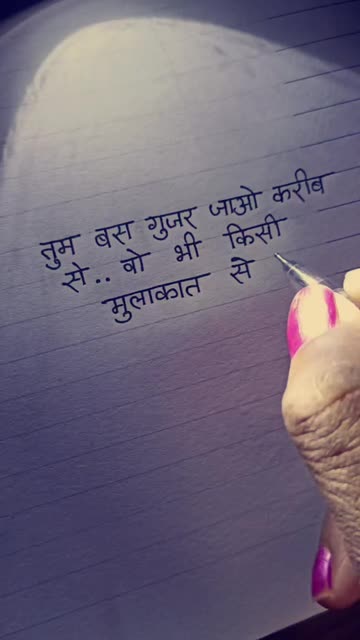 तुम बस गुजर जाओ करीब
से.. वो भी किसी
मुलाकात से